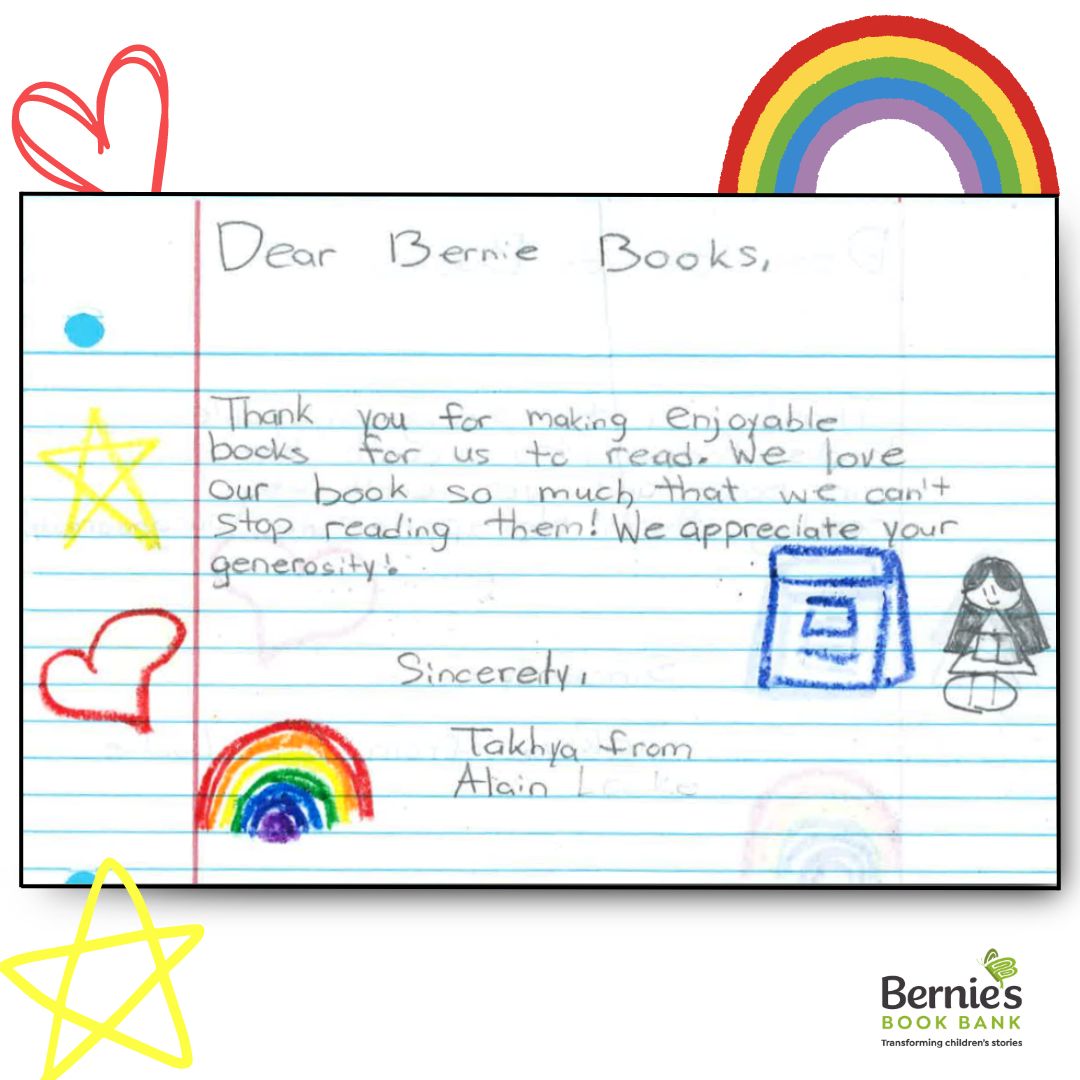 Dear Bernie Books,
Thank you for making enjoyable
books for us to read. We love
our book so much that we can't
stop reading them! We appreciate your
generosity!
Sincerely,
Takhya from
Alain Locke
Bernie's
BOOK BANK
Transforming children's stories